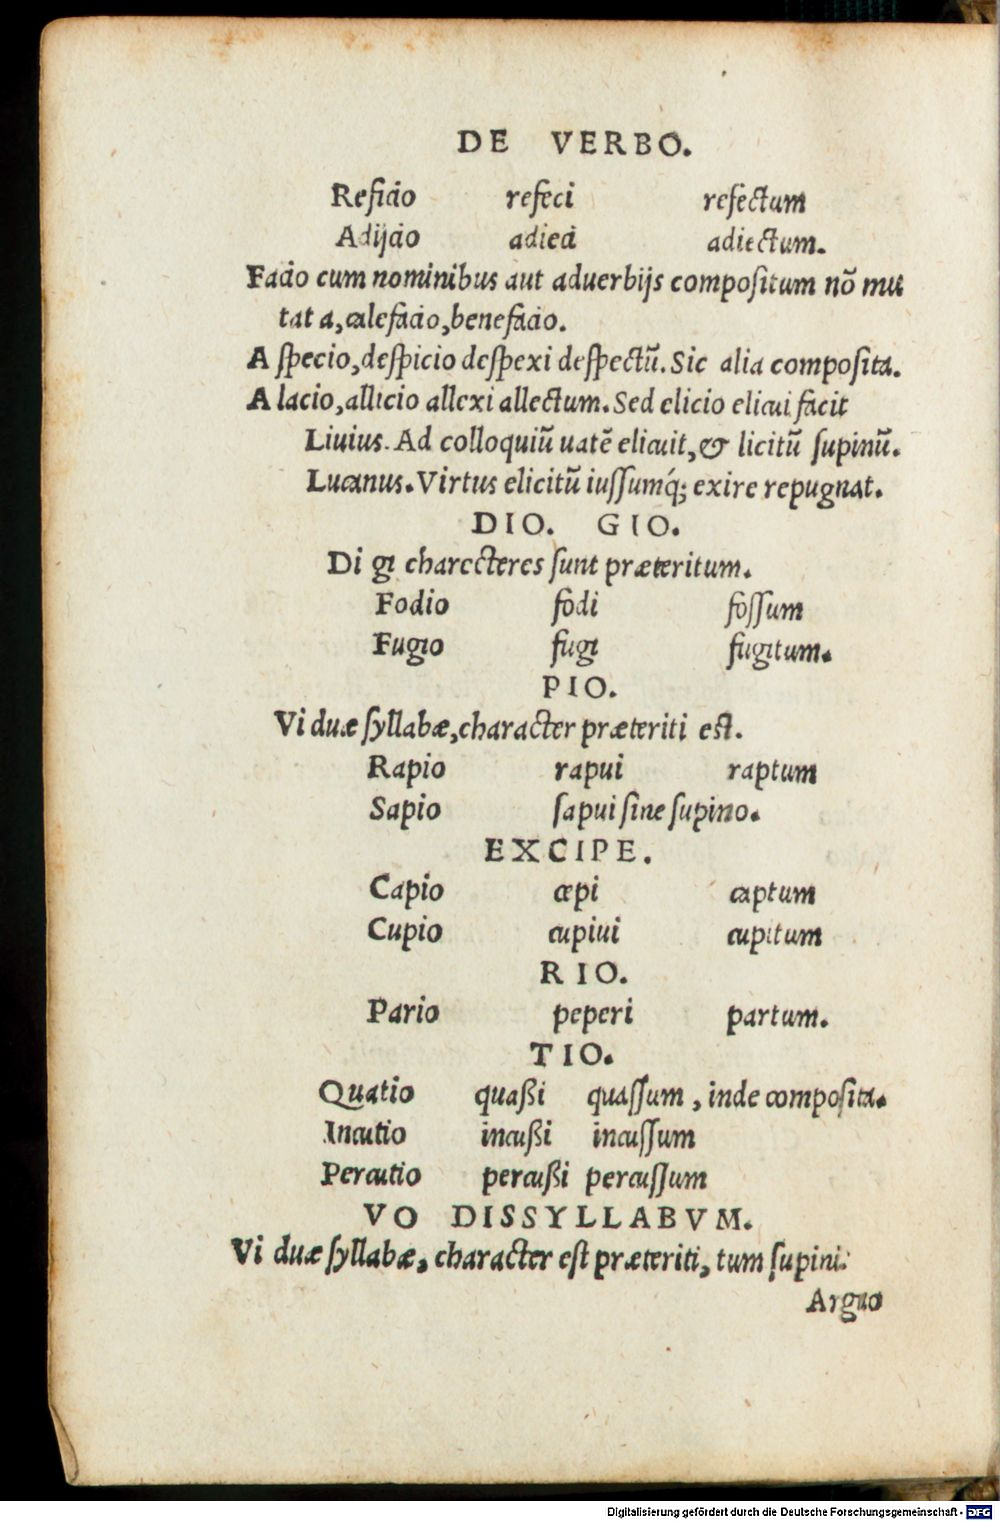 DE VERBO.
Reficio refeci refectum
Adijcio adieci adiectum.
Facio cum nominibus aut aduerbijs compositum nō mu
tat a, calefacio, benefacio.
A specio, despicio despexi despectū. Sic alia composita.
A lacio, allicio allexi allectum. Sed elicio elicui facit
Liuius. Ad colloquiū uatē elicuit, & licitū supinū.
Lucanus. Virtus elicitū iussumq́; exire repugnat.
DIO. GIO.
Di gi charecteres sunt præteritum.
Fodio fodi fossum
Fugio fugi fugitum.
PIO.
Vi duæ syllabæ, character præteriti est.
Rapio rapui raptum
Sapio sapui sine supino.
EXCIPE.
Capio cepi captum
Cupio cupiui cupitum
RIO.
Pario peperi partum.
TIO.
Quatio quaßi quassum, inde composita.
Incutio incußi incussum
Percutio percußi percussum
VO DISSYLLABVM.
Vi duæ syllabæ, character est præteriti, tum supini:
Arguo
Digitalisierung gefördert durch die Deutsche Forschungsgemeinschaft - DFG